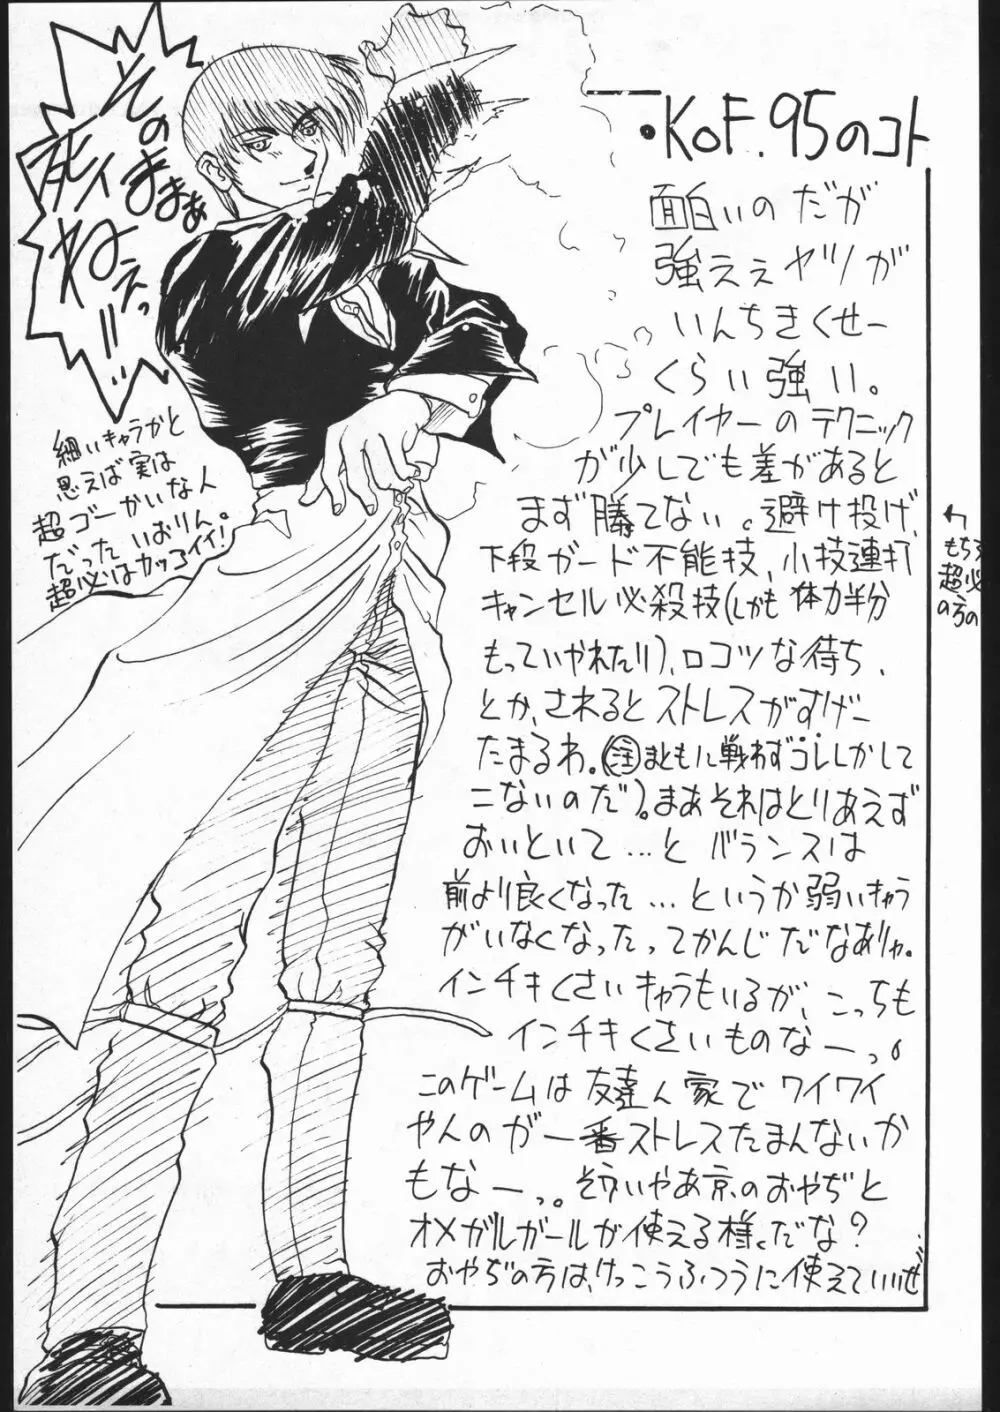 ・KOF.95のコト
面白いのだが
強ええヤツが
いんちきくせー
くらい強い。
プレイヤーのテクニック
が少しでも差があると
まず勝てない。避け投げ、
下段ガード不能技、小技連打
キャンセル必殺技(しかも体力半分
もっていかれたり)、ロコツな待ち、
とか、されるとストレスがすげー
たまるわ。(注まともに戦わずコレしかして
こないのだ)。まあそれはとりあえず
おいといて…と バランスは
前より良くなった…というか弱いキャラ
がいなくなったってかんじだなありゃ。
インチキくさいキャラもいるが、こっちも
インチキくさいものなーっ。
このゲームは友達ん家でワイワイ
やんのが一番ストレスたまんないか
もなーっ。そういやあ京のおやぢと
オメガルガールが使える様だな?
おやぢの方は、けっこうふつうに使えていいぜ…
そのままぁ
死ィ
ねぇっ!!…
細いキャラかと
思えば実は
超ゴーかいな人
だったいおりん。
超必はカッコイイ!
もち
超必
の方の